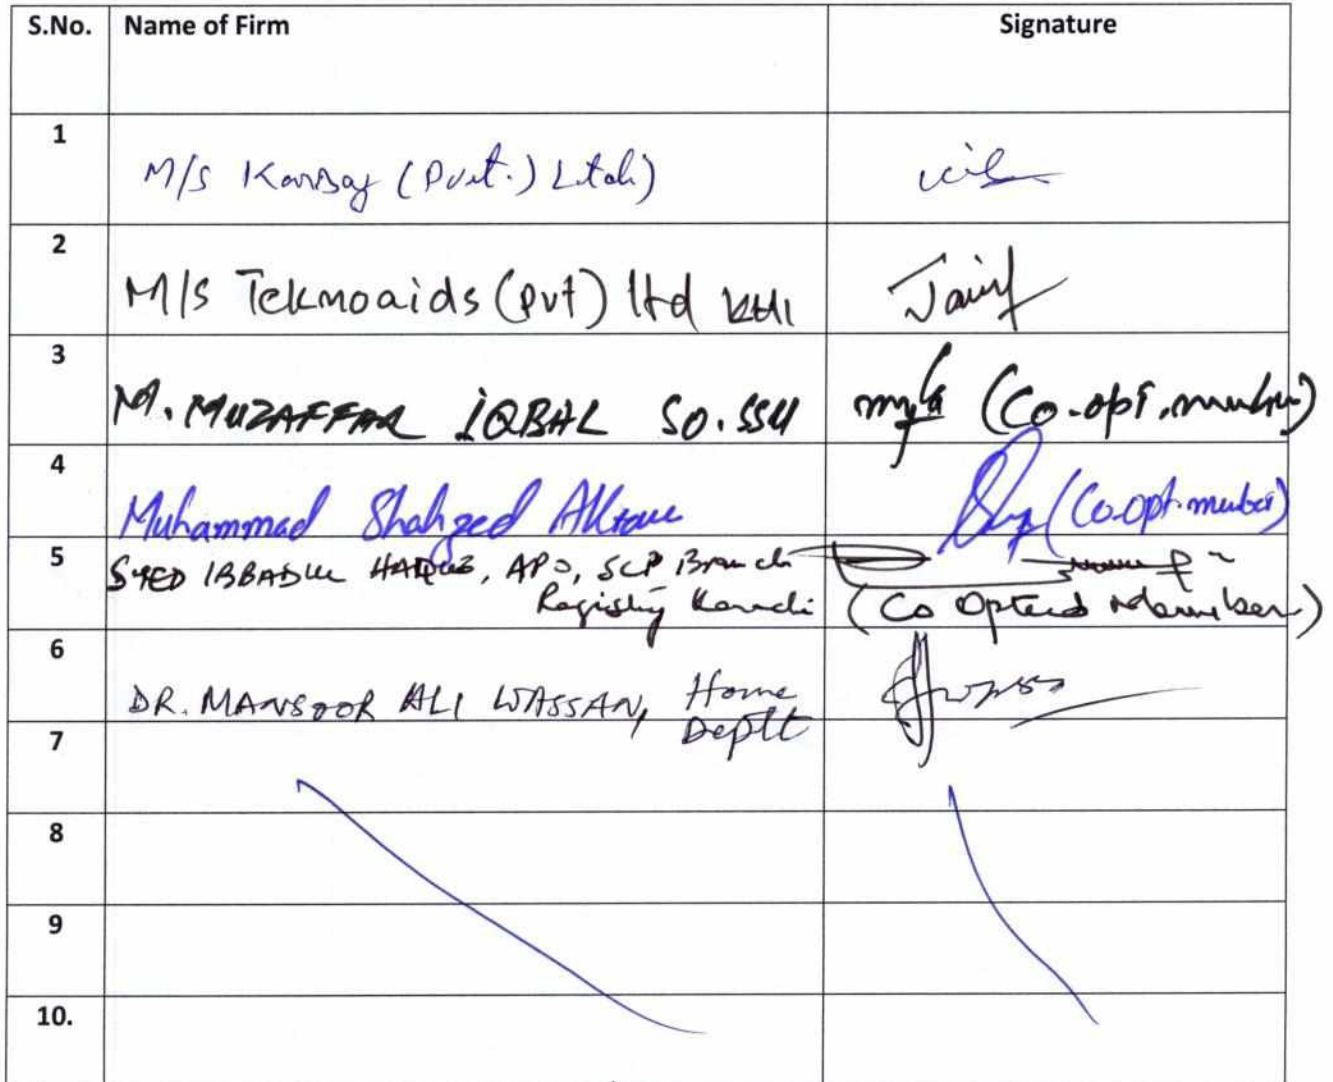 S.No. Name of Firm Signature
1
M/S Karsaz (Pvt.) Ltd.)
2
M/S Teknoaids (Pvt) ltd KHI
3
M. MUZAFFAR IQBAL SO. SSU (Co-opt. member)
4
Muhammad Shahzed (Co-opt. member)
5
SYED IBBADUL HAQUE, APO, SCP Branch
Registry Karachi (Co Opted Member)
6
DR. MANSOOR ALI WASSAN, Home
Deptt
7
8
9
10.